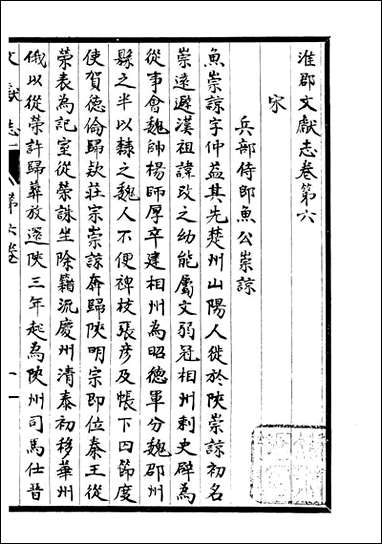 淮郡文獻志卷第六
宋
兵部侍郎魚公崇諒
魚崇諒字仲益其先楚州山陽人徙於陝崇諒初名
崇遠避漢祖諱改之幼能屬文弱冠相州刺史辟為
從事會魏帥楊師厚卒建相州為昭德軍分魏郡州
縣之半以隸之魏人不便裨校張彥及帳下囚節度
使賀德倫歸欵莊宗崇諒奔歸陝明宗即位秦王從
榮表為記室從榮誅坐除籍流慶州清泰初移華州
俄以從榮許歸葬放還陝三年起為陝州司馬仕晉
文獻志 第六卷 一